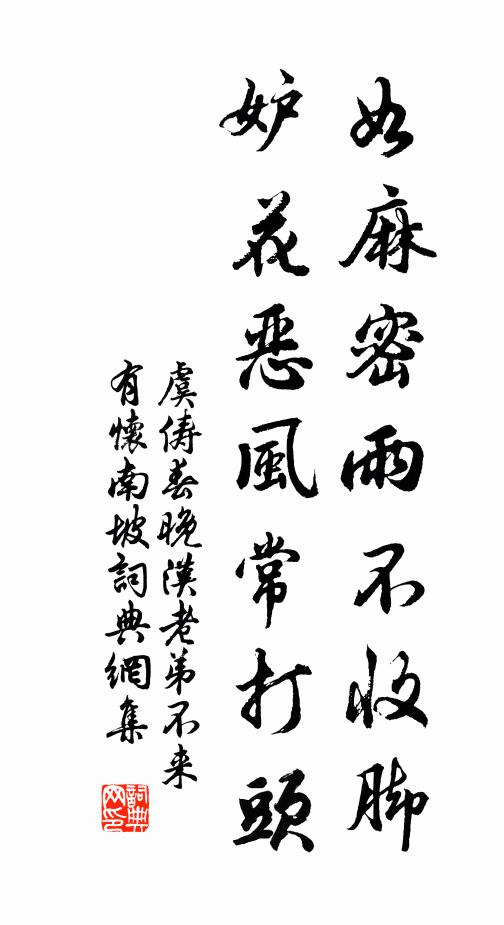 如麻密雨不收脚
妒花恶風常打頭
虞俦春晚漢老弟不来
有懷南坡詞典網集
詞典网印